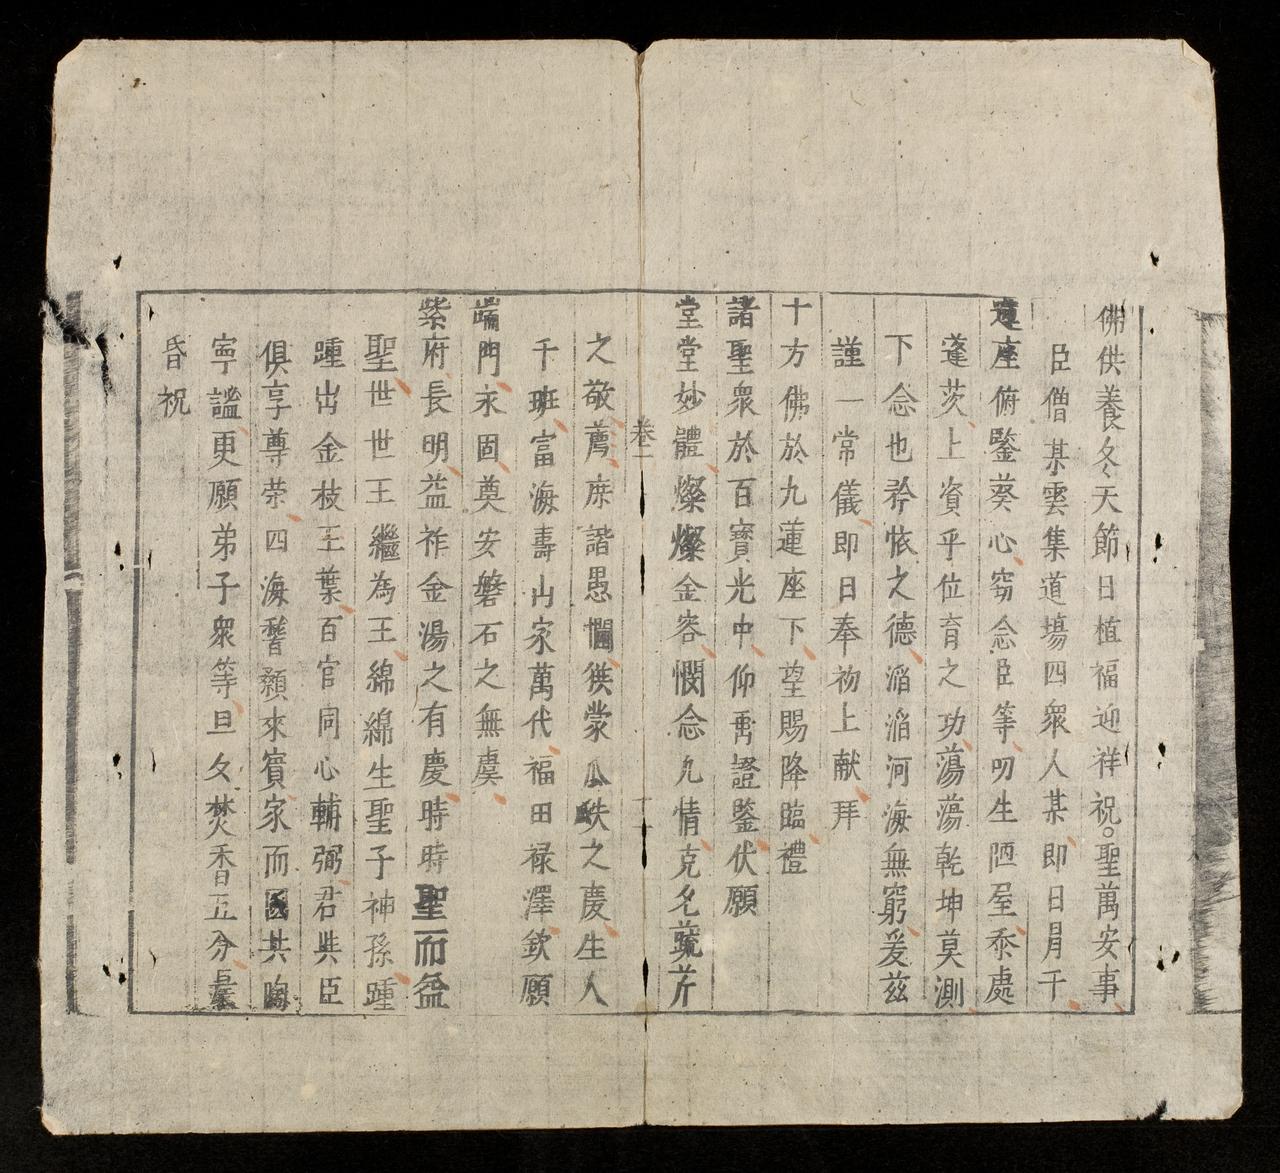 佛供養冬天節日植福迎祥祝○聖萬安事
臣僧某雲集道場四衆人某即日冐千
蓮座俯鑒葵心窃念臣等叨生陋屋忝處
蓬茨上資乎位育之功蕩蕩乾坤莫測
下念也矜恢之德滔滔河海無窮爰兹
謹一常儀即日奉礽上献拜
十方佛於九蓮座下望賜降臨禮
諸聖衆於百寳光中仰兾證鑒伏願
堂堂妙體燦燦金容憫念九情克允蕘芹
卷一
十
之敬薦庶諧愚悃俟䝉瓜瓞之慶生人
千班富海壽山家萬代福田禄澤欽願
端門永固奠安磐石之無虞
紫府長明益祚金湯之有慶時時聖而益
聖世世王繼為王綿綿生聖子神孫踵
踵出金枝玉葉百官同心輔弼君共臣
俱享尊荣四海稽顙來賓家而國共
寧謐更願弟子衆等旦夕焚香五分
昏祝